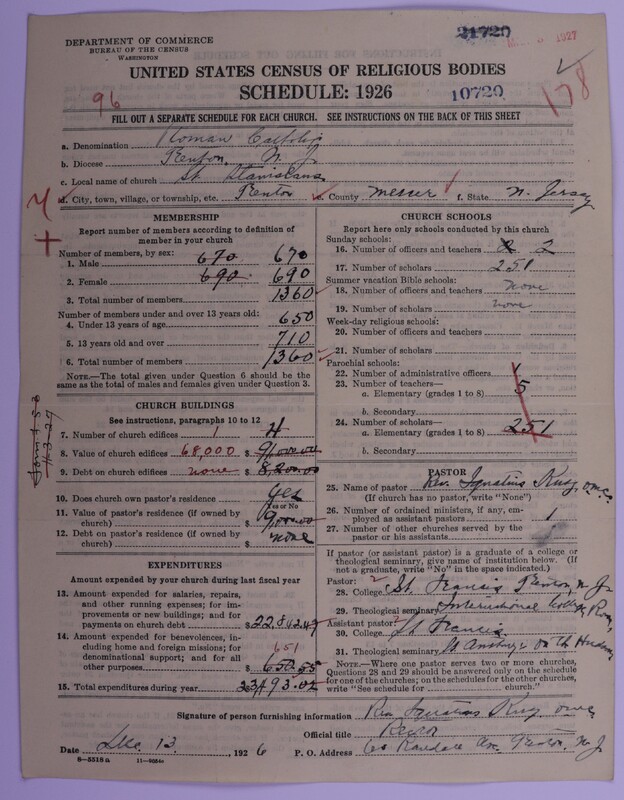 DEPARTMENT OF COMMERCE
BUREAU OF THE CENSUS
WASHINGTON
21720
1927
UNITED STATES CENSUS OF RELIGIOUS BODIES
SCHEDULE: 1926
10720
96
178
FILL OUT A SEPARATE SCHEDULE FOR EACH CHURCH. SEE INSTRUCTIONS ON THE BACK OF THIS SHEET
a. Denomination Roman Catholic
b. Diocese Trenton, N. J.
c. Local name of church St. Stanislaus
d. City, town, village, or township, etc. Trenton e. County Mercer f. State N. Jersey
MEMBERSHIP
Report number of members according to definition of member in your church
Number of members, by sex:
1. Male 670 670
2. Female 690 690
3. Total number of members 1360
Number of members under and over 13 years old:
4. Under 13 years of age 650
5. 13 years old and over 710
6. Total number of members 1360
NOTE.—The total given under Question 6 should be the same as the total of males and females given under Question 3.
CHURCH BUILDINGS
See instructions, paragraphs 10 to 12
7. Number of church edifices 1 4
8. Value of church edifices 68,000 $ 91,000.00
9. Debt on church edifices none $ 8,200.00
10. Does church own pastor's residence Yes
Yes or No
11. Value of pastor's residence (if owned by church) $ 9,000.00
12. Debt on pastor's residence (if owned by church) $ none
EXPENDITURES
Amount expended by your church during last fiscal year
13. Amount expended for salaries, repairs, and other running expenses; for improvements or new buildings; and for payments on church debt $ 22,842.47
14. Amount expended for benevolences, including home and foreign missions; for denominational support; and for all other purposes 651 $ 650.55
15. Total expenditures during year 23,493.02
CHURCH SCHOOLS
Report here only schools conducted by this church
Sunday schools:
16. Number of officers and teachers 2
17. Number of scholars 251
Summer vacation Bible schools:
18. Number of officers and teachers none
19. Number of scholars none
Week-day religious schools:
20. Number of officers and teachers
21. Number of scholars
Parochial schools:
22. Number of administrative officers
23. Number of teachers—
a. Elementary (grades 1 to 8) 5
b. Secondary
24. Number of scholars—
a. Elementary (grades 1 to 8) 251
b. Secondary
PASTOR
25. Name of pastor Rev. Ignatius Rusy, O.M.C.
(If church has no pastor, write "None")
26. Number of ordained ministers, if any, employed as assistant pastors 1
27. Number of other churches served by the pastor or his assistants
If pastor (or assistant pastor) is a graduate of a college or theological seminary, give name of institution below. (If not a graduate, write "No" in the space indicated.)
Pastor:
28. College St. Francis Trenton, N. J.
29. Theological seminary International College Rome
Assistant pastor:
30. College St. Francis
31. Theological seminary St. on the Hudson
NOTE.—Where one pastor serves two or more churches, Questions 28 and 29 should be answered only on the schedule for one of the churches; on the schedules for the other churches, write "See schedule for church."
Signature of person furnishing information Rev. Ignatius Rusy O.M.C.
Official title Rector
Date Dec. 13, 1926 P. O. Address 60 Randall Ave. Trenton, N. J.
8—5518a 11—9084